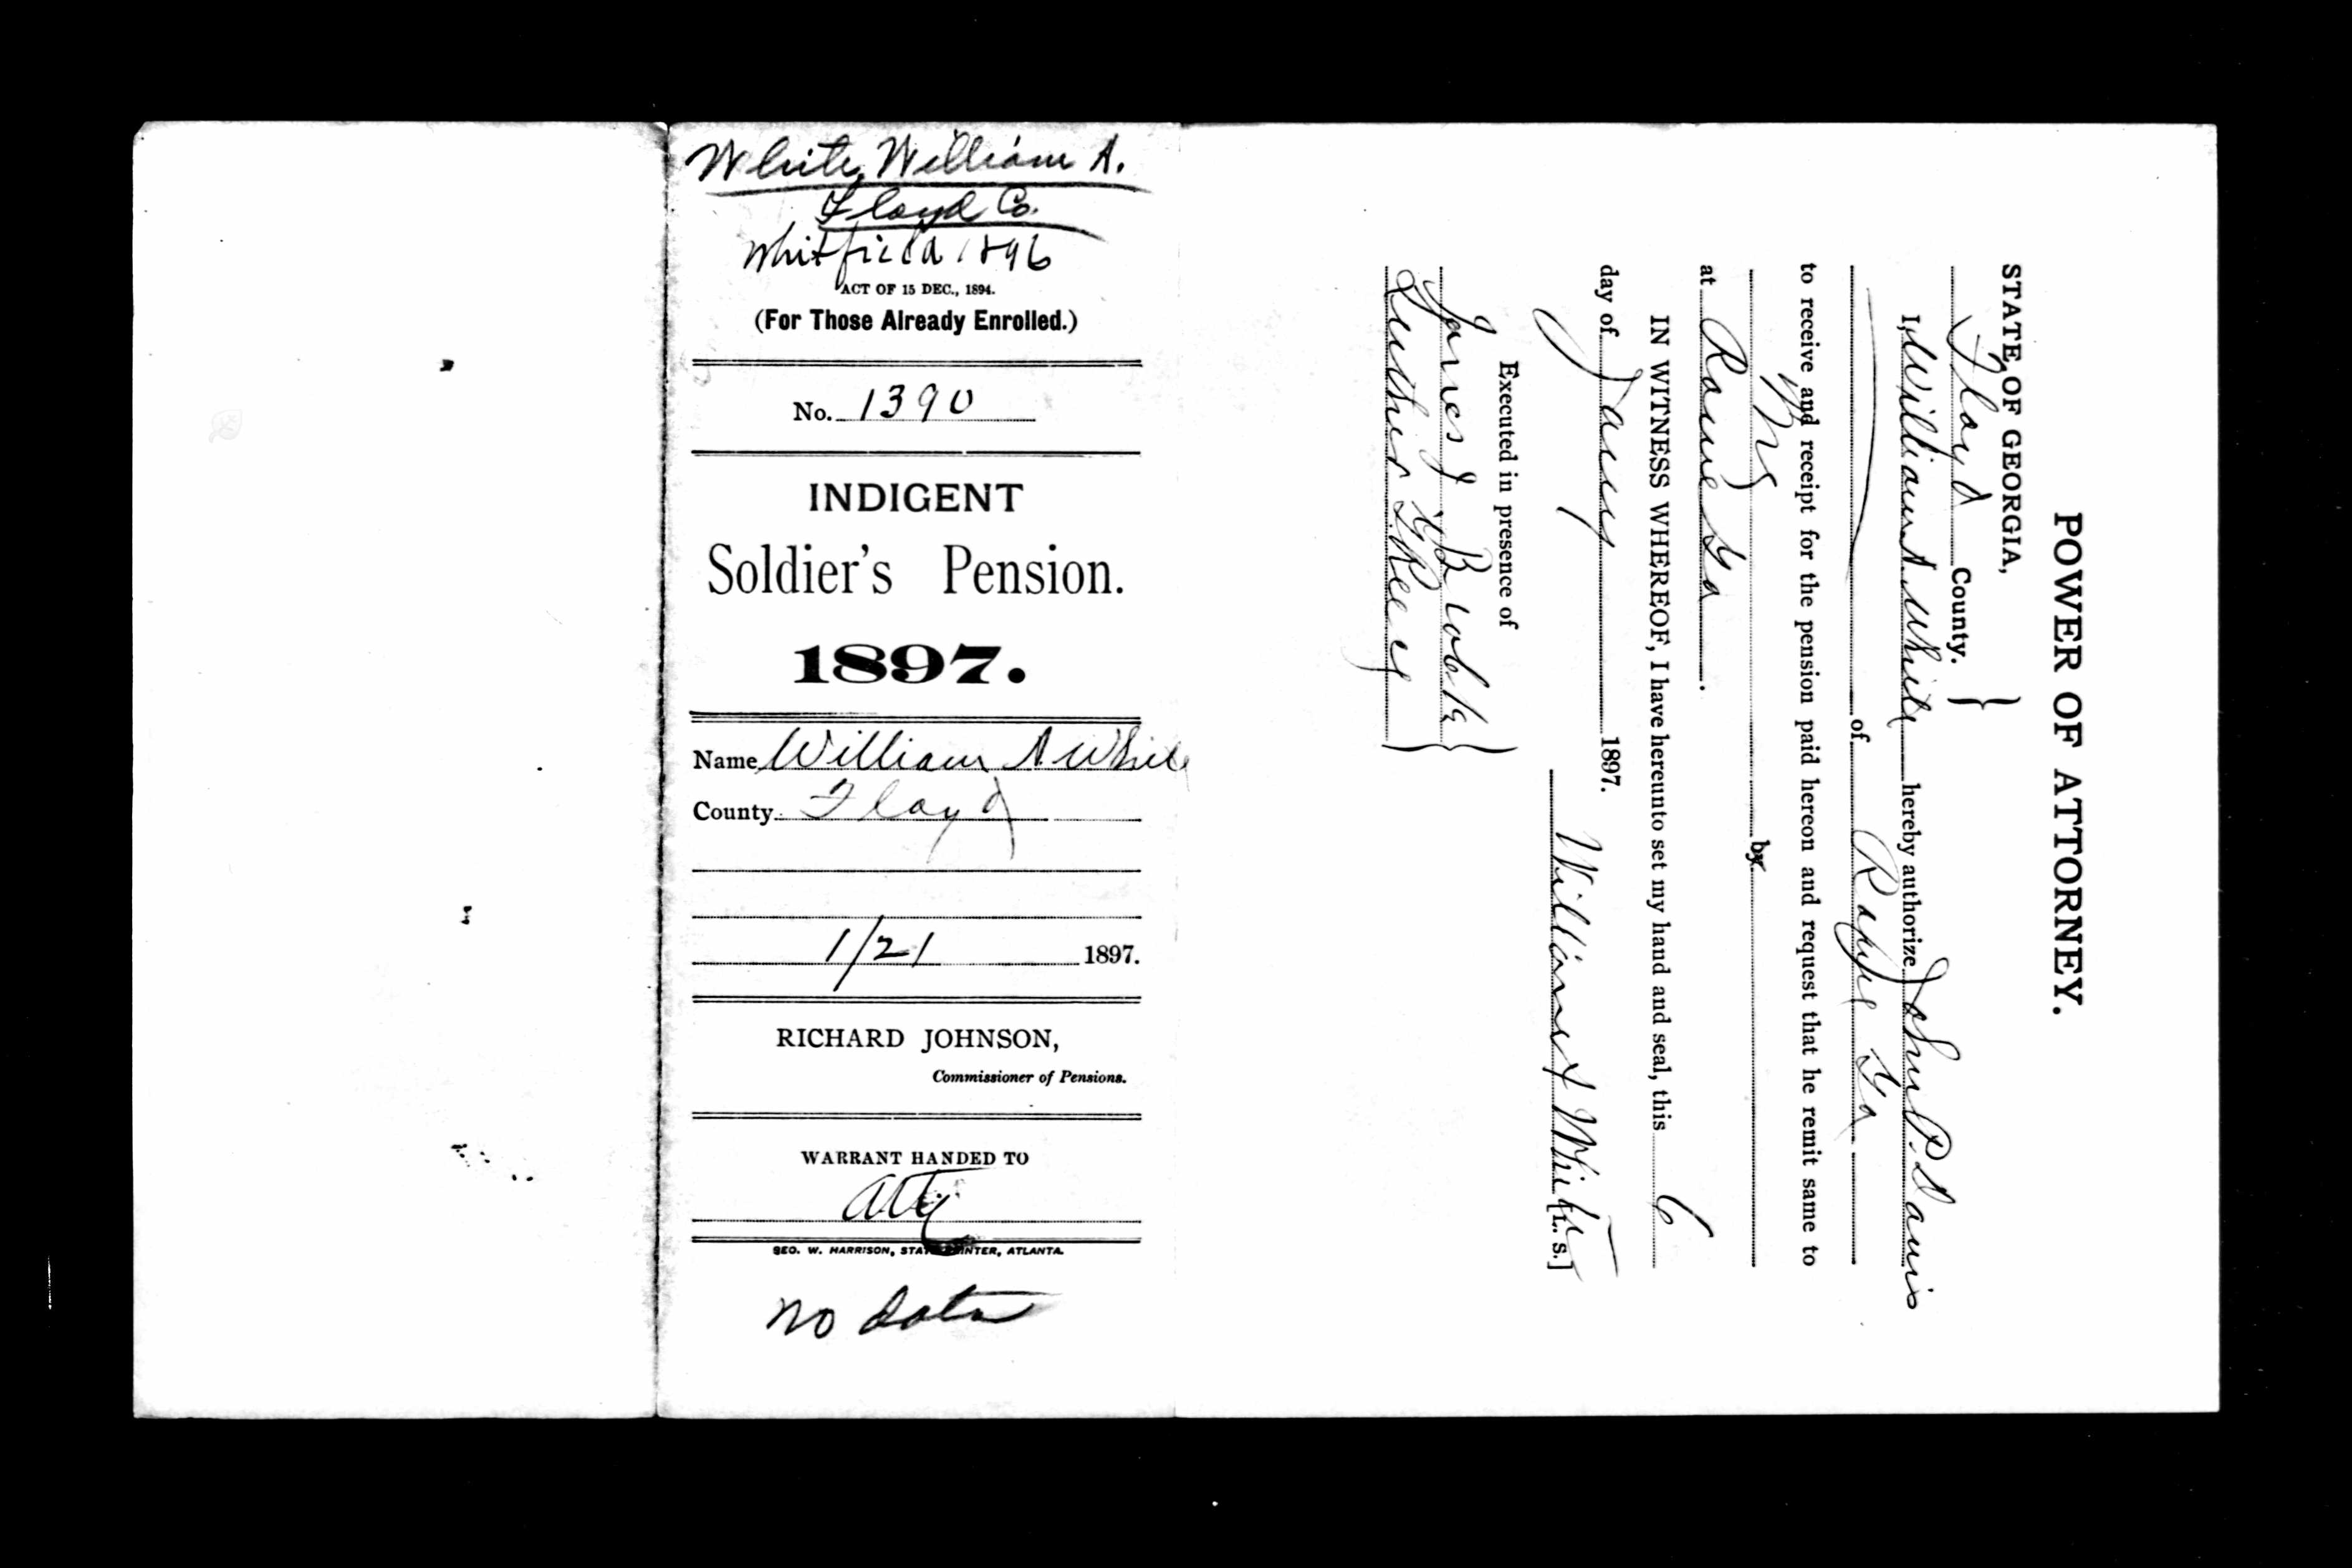 White, William A.
Floyd Co.
Whitfield 1896
ACT OF 15 DEC., 1894.
(For Those Already Enrolled.)
No. 1390
INDIGENT
Soldier's Pension.
1897.
Name William A White
County Floyd
1/21 1897.
RICHARD JOHNSON,
Commissioner of Pensions.
WARRANT HANDED TO
atty
GEO. W. HARRISON, STATE PRINTER, ATLANTA.
No data
POWER OF ATTORNEY.
STATE OF GEORGIA,
Floyd County.
I, William A. White hereby authorize John P. Davis
of Ga
to receive and receipt for the pension paid hereon and request that he remit same to
me by
at Rome Ga.
IN WITNESS WHEREOF, I have hereunto set my hand and seal, this 6
day of Jany 1897.
William White [L. S.]
Executed in presence of
James